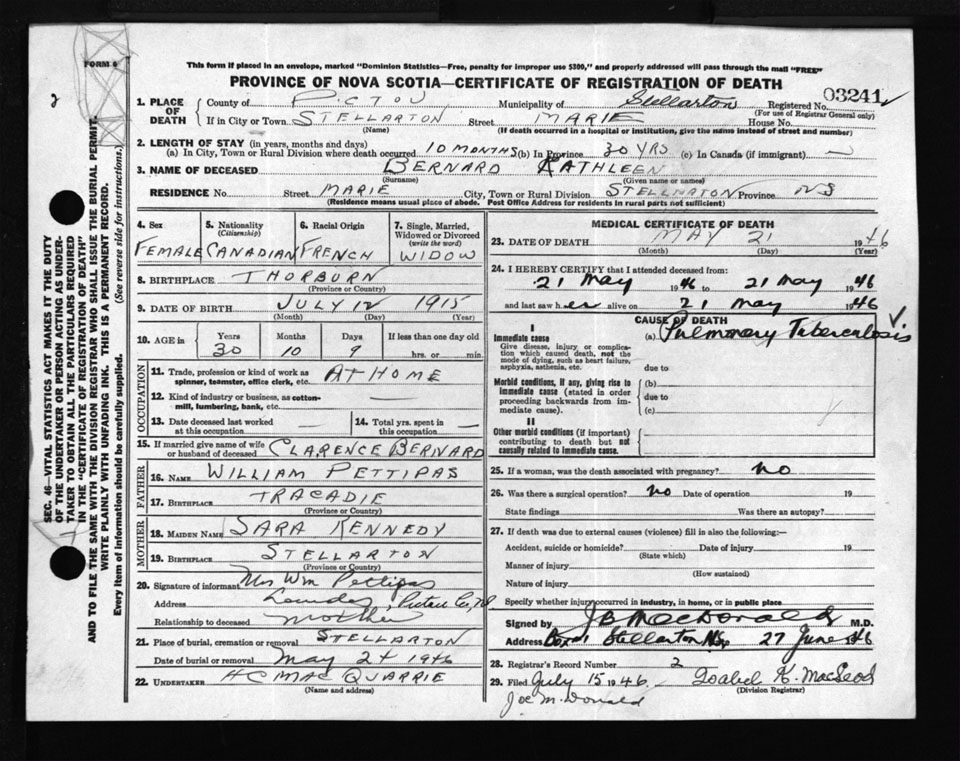 FORM 6
This form if placed in an envelope, marked "Dominion Statistics—Free, penalty for improper use $300," and properly addressed will pass through the mail "FREE"
PROVINCE OF NOVA SCOTIA—CERTIFICATE OF REGISTRATION OF DEATH
2
1. PLACE OF DEATH
County of PICTOU Municipality of Stellarton Registered No. 03241
(For use of Registrar General only)
If in City or Town STELLARTON Street MARIE House No.
(Name) (If death occurred in a hospital or institution, give the name instead of street and number)
2. LENGTH OF STAY (in years, months and days)
(a) In City, Town or Rural Division where death occurred 10 MONTHS (b) In Province 30 YRS (c) In Canada (if immigrant) —
3. NAME OF DECEASED BERNARD KATHLEEN
(Surname) (Given name or names)
RESIDENCE No. Street MARIE City, Town or Rural Division STELLARTON Province NS
(Residence means usual place of abode. Post Office Address for residents in rural parts not sufficient)
4. Sex FEMALE
5. Nationality (Citizenship) CANADIAN
6. Racial Origin FRENCH
7. Single, Married, Widowed or Divorced (write the word) WIDOW
8. BIRTHPLACE THORBURN
(Province or Country)
9. DATE OF BIRTH JULY 12 1915
(Month) (Day) (Year)
10. AGE in Years Months Days If less than one day old
30 10 9 hrs. or min.
OCCUPATION
11. Trade, profession or kind of work as spinner, teamster, office clerk, etc. AT HOME
12. Kind of industry or business, as cotton-mill, lumbering, bank, etc. —
13. Date deceased last worked at this occupation —
14. Total yrs. spent in this occupation —
15. If married give name of wife or husband of deceased CLARENCE BERNARD
FATHER
16. NAME WILLIAM PETTIPAS
17. BIRTHPLACE TRACADIE
(Province or Country)
MOTHER
18. MAIDEN NAME SARA KENNEDY
19. BIRTHPLACE STELLARTON
(Province or Country)
20. Signature of informant Mrs Wm Pettipas
Address Pictou Co,
Relationship to deceased mother
21. Place of burial, cremation or removal STELLARTON
Date of burial or removal May 24 1946
22. UNDERTAKER HC MAC QUARRIE
(Name and address)
MEDICAL CERTIFICATE OF DEATH
23. DATE OF DEATH MAY 21 1946
(Month) (Day) (Year)
24. I HEREBY CERTIFY that I attended deceased from:
21 May 1946 to 21 May 1946
and last saw her alive on 21 May 1946
CAUSE OF DEATH
I
Immediate cause (a) Pulmonary Tuberculosis
Give disease, injury or complication which caused death, not the mode of dying, such as heart failure, asphyxia, asthenia, etc.
due to
Morbid conditions, if any, giving rise to immediate cause (stated in order proceeding backwards from immediate cause).
(b)
due to
(c)
II
Other morbid conditions (if important) contributing to death but not causally related to immediate cause.
25. If a woman, was the death associated with pregnancy? no
26. Was there a surgical operation? no Date of operation 19
State findings Was there an autopsy?
27. If death was due to external causes (violence) fill in also the following:—
Accident, suicide or homicide? Date of injury 19
(State which)
Manner of injury
(How sustained)
Nature of injury
Specify whether injury occurred in industry, in home, or in public place
Signed by JB MacDonald M.D.
Address Box 1 Stellarton NS 27 June 1946
28. Registrar's Record Number 2
29. Filed July 15 1946 Isabel K. MacLeod
(Division Registrar)
Joe McDonald
SEC. 46—VITAL STATISTICS ACT MAKES IT THE DUTY
OF THE UNDERTAKER OR PERSON ACTING AS UNDER-
TAKER TO OBTAIN ALL THE PARTICULARS REQUIRED
IN THE "CERTIFICATE OF REGISTRATION OF DEATH"
AND TO FILE THE SAME WITH THE DIVISION REGISTRAR WHO SHALL ISSUE THE BURIAL PERMIT.
WRITE PLAINLY WITH UNFADING INK. THIS IS A PERMANENT RECORD.
Every item of information should be carefully supplied. (See reverse side for instructions.)